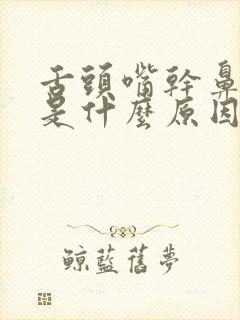 舌頭嘴幹鼻
是什麼原因
鯨藍舊夢